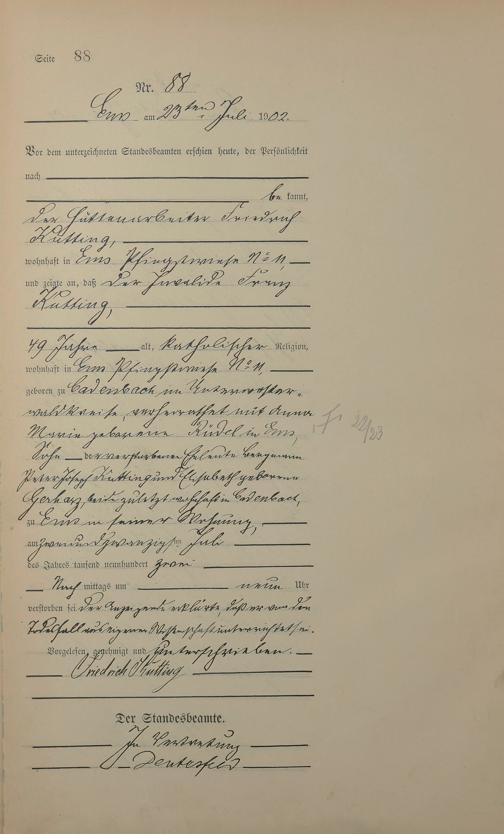 Seite 88
Nr. 88
Ems am 23ten Juli 1902.
Vor dem unterzeichneten Standesbeamten erschien heute, der Persönlichkeit
nach
be kannt,
der Hüttenarbeiter Friedrich
Kutting,
wohnhaft in Ems Pfingstwiese No 11,
und zeigte an, daß der Invalide Franz
Kutting,
49 Jahre alt, katholischer Religion,
wohnhaft in Ems Pfingstwiese No 11,
geboren zu Cadenbach im Unterwester-
waldkreise, verheirathet mit Anna
Maria geborene Rüdel in Ems,
22/23
Sohn der verstorbenen Eheleute Bergmann
Peter Joseph Kutting und Elisabeth geborene
Gerharz, beide zuletzt wohnhaft in Cadenbach,
zu Ems in seiner Wohnung,
am zweiundzwanzigsten Juli
des Jahres tausend neunhundert zwei
Nach mittags um neun Uhr
verstorben sei. Der Anzeigende erklärte, daß er von dem
Todesfall aus eigener Wissenschaft unterrichtet sei.
Vorgelesen, genehmigt und unterschrieben.
Friedrich Kutting
Der Standesbeamte.
In Vertretung